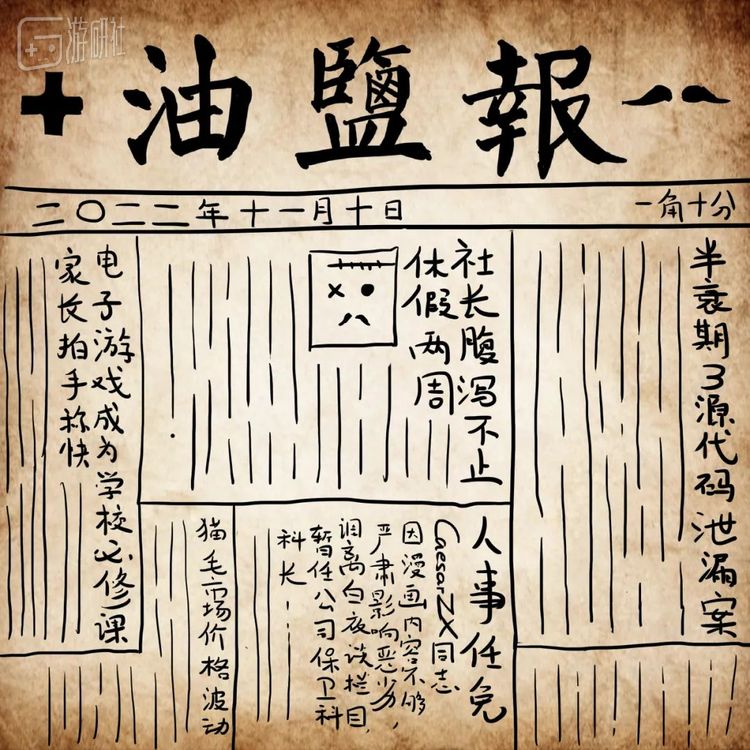 游研社
油鹽報
二〇二二年十一月十日
一角十分
半衰期3源代码泄漏案
社长腹泻不止
休假两周
电子游戏成为学校必修课
家长拍手称快
人事任免
CaesarZX同志
因漫画内容不够,
严肃影响恶劣,
调离白夜谈栏目,
暂任公司保卫科
科长……
猫毛市场价格波动